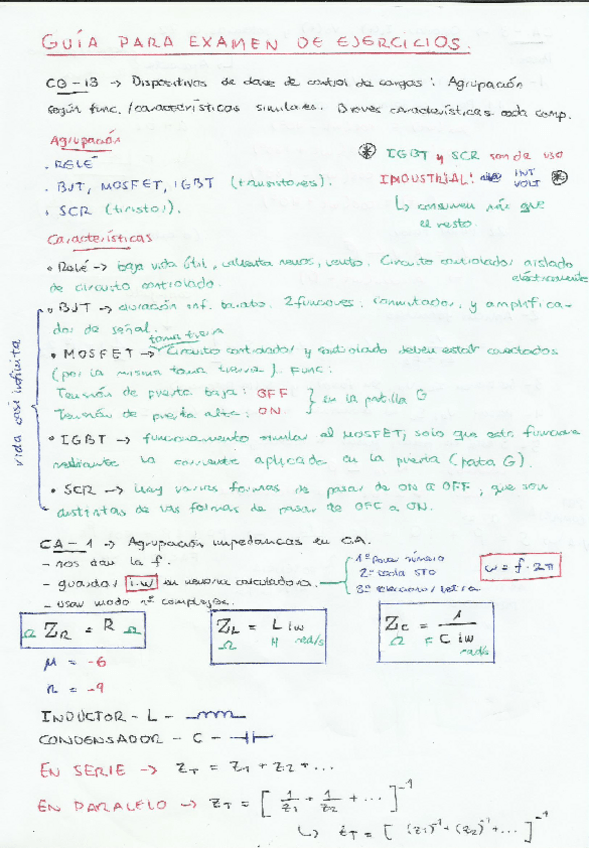 GUÍA PARA EXAMEN DE EJERCICIOS.
CO-13 → Dispositivos de clase de control de cargas: Agrupación
según func./características similares. Breves características cada comp.
Agrupación
. RELÉ
. BJT, MOSFET, IGBT (transitores).
. SCR (tiristor).
⊛ IGBT y SCR son de uso
INDUSTRIAL! INT VOLT ⊛
↳ consumen más que
el resto.
Características
• Relé → baja vida útil, lento. Circuito controlador aislado
eléctricamente
de circuito controlado.
• BJT → duración inf. barato. 2 funciones: conmutador, y amplifica-
dor de señal.
toma tierra
• MOSFET → Circuito controlador y controlado deben estar conectados
(por la misma toma tierra). Func:
Tensión de puerta baja: OFF
Tensión de puerta alta: ON
} en la patilla G
• IGBT → funcionamiento similar al MOSFET, solo que este funciona
mediante la corriente aplicada en la puerta (pata G).
• SCR → Hay varias formas de pasar de ON a OFF, que son
distintas de las formas de pasar de OFF a ON.
vida casi infinita
CA-1 → Agrupación impedancias en CA.
- nos dan la f.
- guardar i·w en memoria calculadora.
1º poner número
2º tecla STO
3º seleccionar letra
w = f · 2π
- usar modo nº complejos.
Ω Z_R = R Ω
Z_L = L i w
Ω H rad/s
Z_C = 1 / C i w
Ω F rad/s
μ = -6
n = -9
INDUCTOR - L -
CONDENSADOR - C -
EN SERIE → Z_T = Z_1 + Z_2 + ...
EN PARALELO → Z_T = [ 1/Z_1 + 1/Z_2 + ... ]^-1
↳ Z_T = [ (Z_1)^-1 + (Z_2)^-1 + ... ]^-1